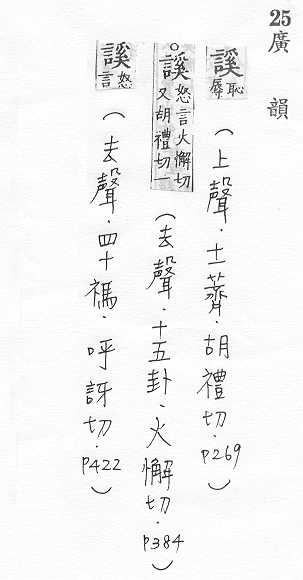 25 廣韻
謑 恥辱（上聲．十一薺．胡禮切．P269）
○謑 怒言火懈切又胡禮切一（去聲．十五卦．火懈切．P384）
謑 怒言（去聲．四十禡．呼訝切．P422）